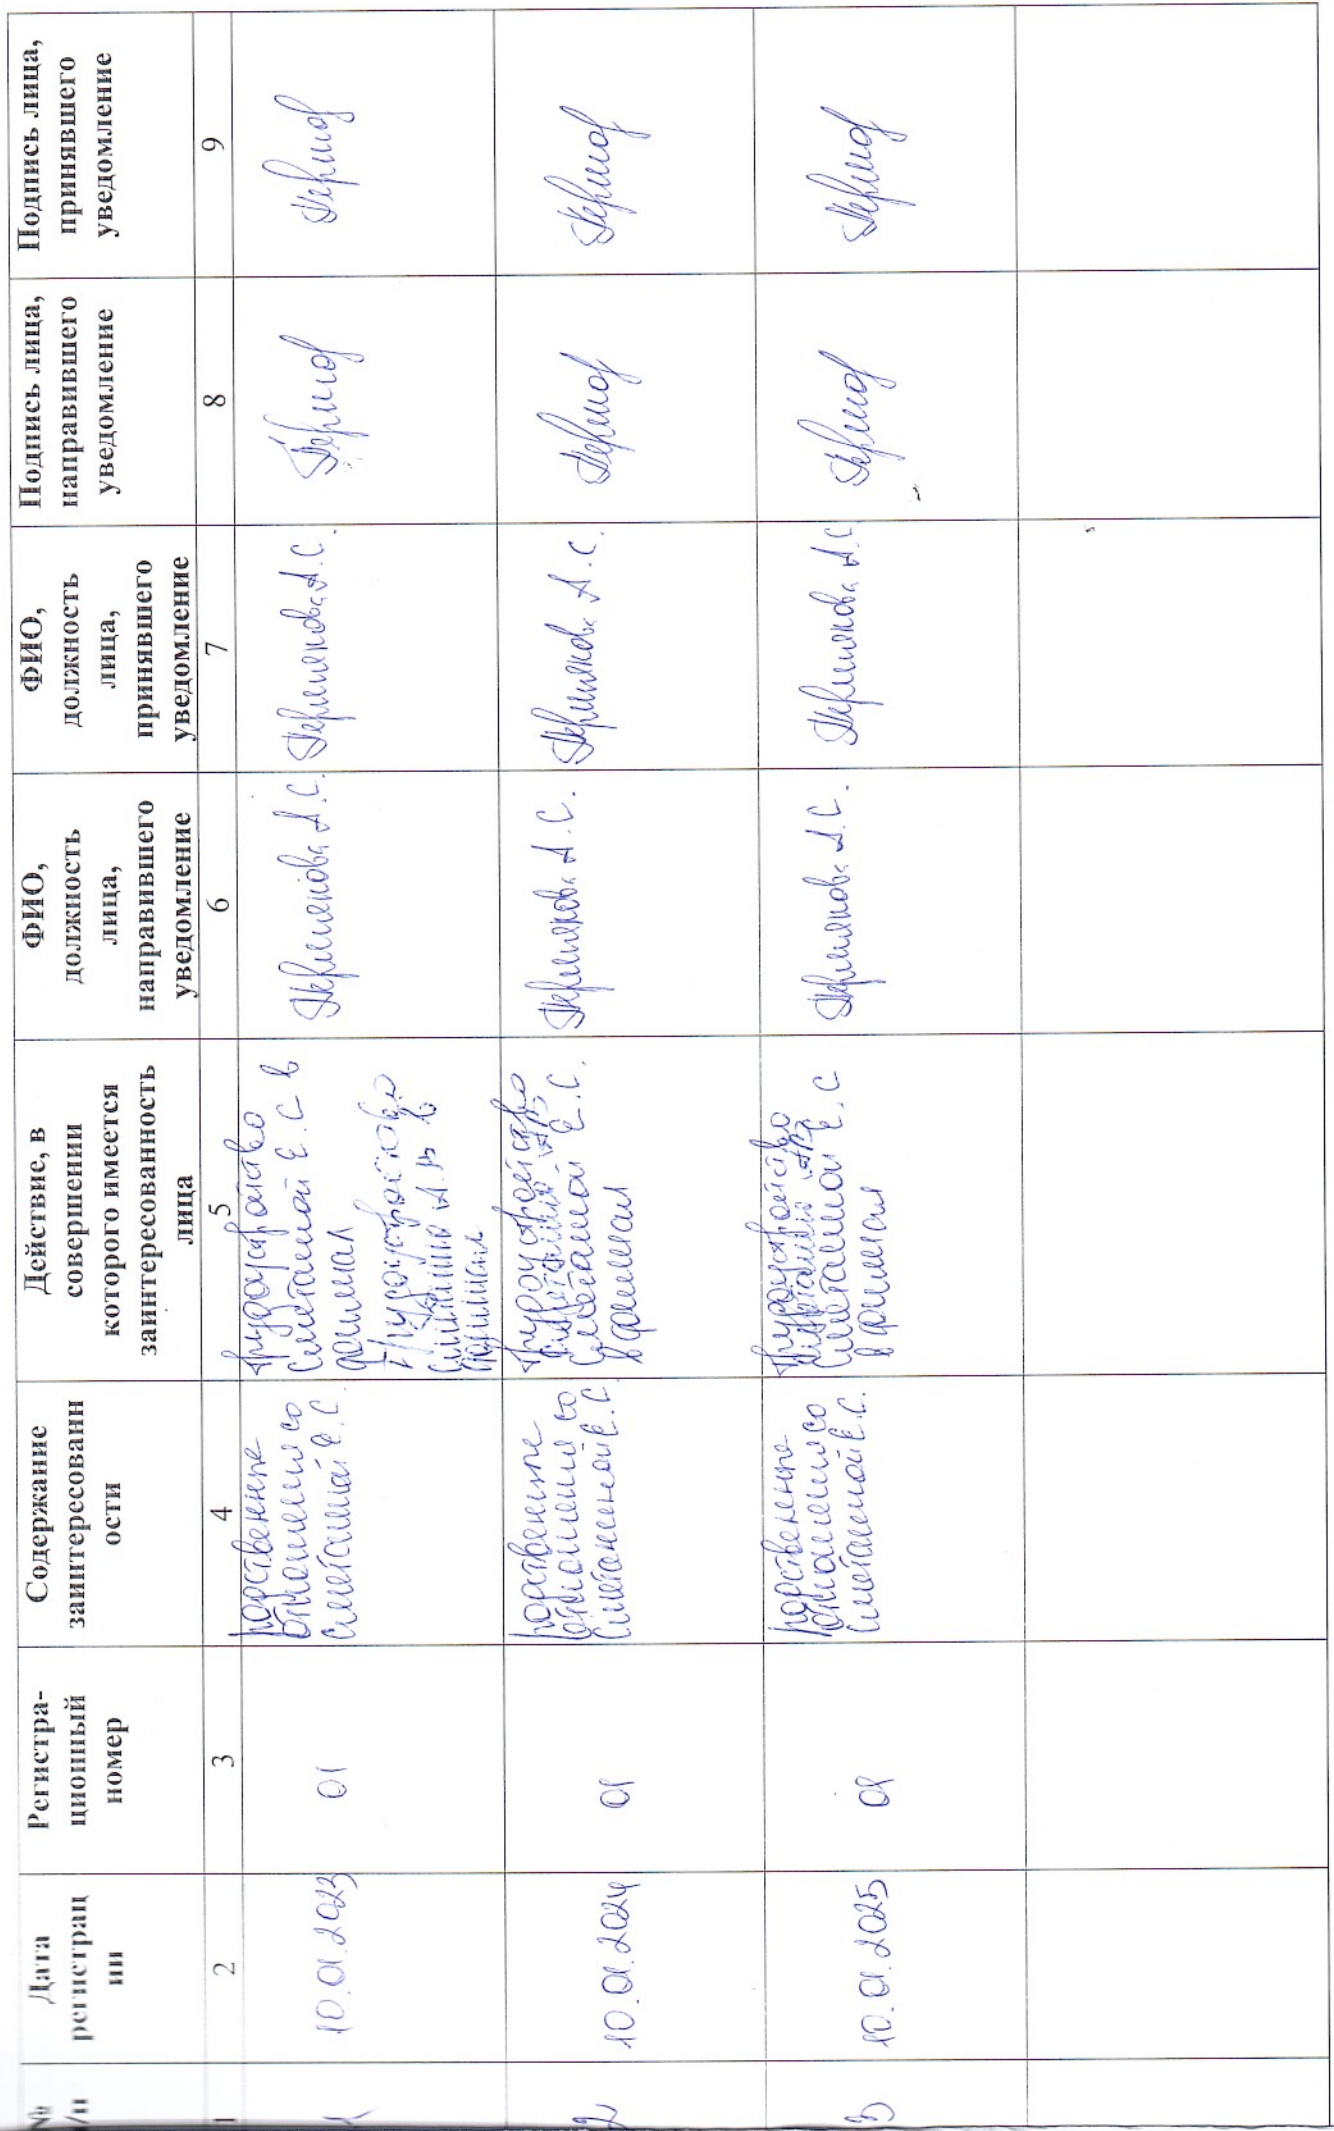 №
/п
Дата
регистрац
ии
Регистра-
ционный
номер
Содержание
заинтересованн
ости
Действие, в
совершении
которого имеется
заинтересованность
лица
ФИО,
должность
лица,
направившего
уведомление
ФИО,
должность
лица,
принявшего
уведомление
Подпись лица,
направившего
уведомление
Подпись лица,
принявшего
уведомление
1
2
3
4
5
6
7
8
9
1
10.01.2023
01
родственные
отношения со
Сметаниной Е.С.
Трудоустройство
Сметаниной Е.С в
филиал
Трудоустройство
филиал
Пермякова А.С.
Пермякова А.С.
2
10.01.2024
01
родственные
отношения со
Сметаниной Е.С.
Трудоустройство
Сметаниной Е.С.
в филиал
Пермякова А.С.
Пермякова А.С.
3
10.01.2025
01
родственные
отношения со
Сметаниной Е.С.
Трудоустройство
Сметаниной Е.С
в филиал
Пермякова А.С.
Пермякова А.С